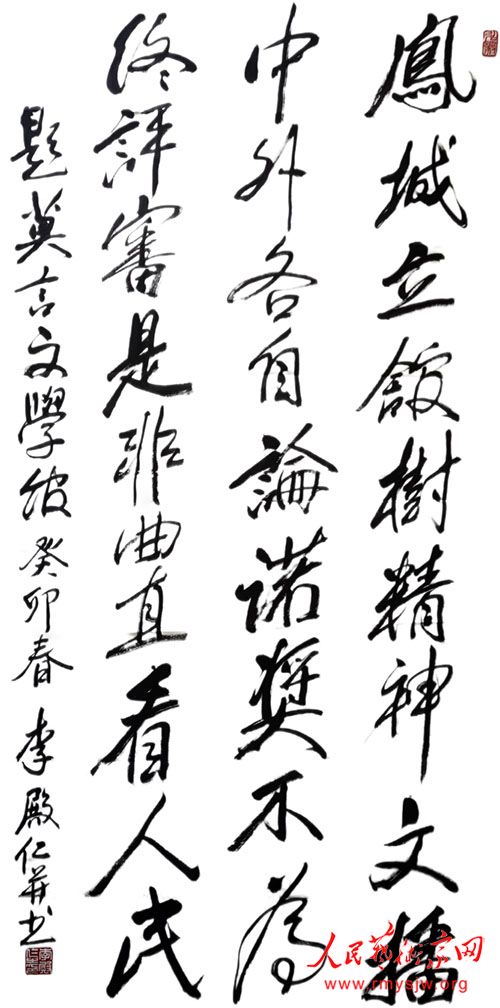 鳳城立館樹精神文播
中外各自論諾獎不為
終評審是非曲直看人民
題莫言文學館癸卯春 李殿仁并书
人民藝術家网
www.rmysjw.org